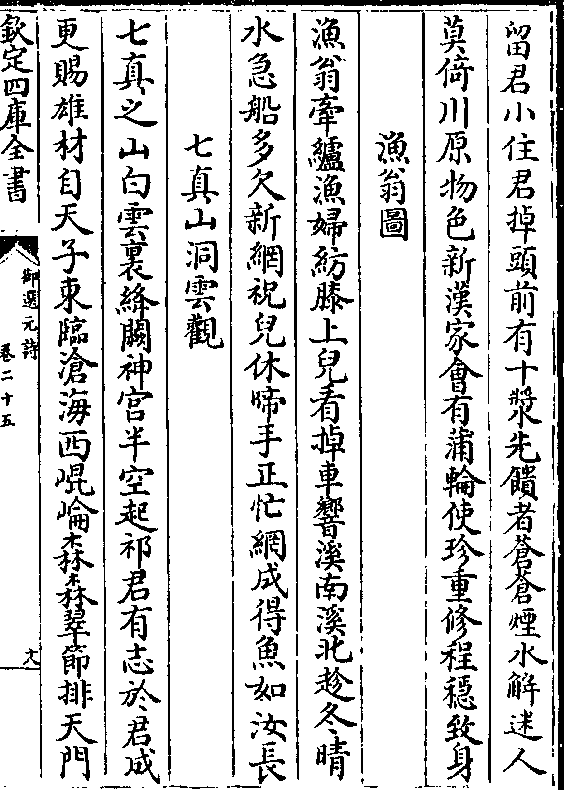 留君小住君掉頭前有十漿先饋者蒼蒼煙水解迷人
莫倚川原物色新漢家會有蒲輪使珍重修程穩致身
漁翁圖
漁翁牽鱸漁婦紡膝上兒看掉車響溪南溪北趁冬晴
水急船多欠新網祝兒休啼手正忙網成得魚如汝長
七真山洞雲觀
七真之山白雲裏絳闕神宮半空起祁君有志於君成
更賜雄材自天子東臨滄海西崐崘森森翠節排天門
欽定四庫全書
御選元詩
卷二十五
十八